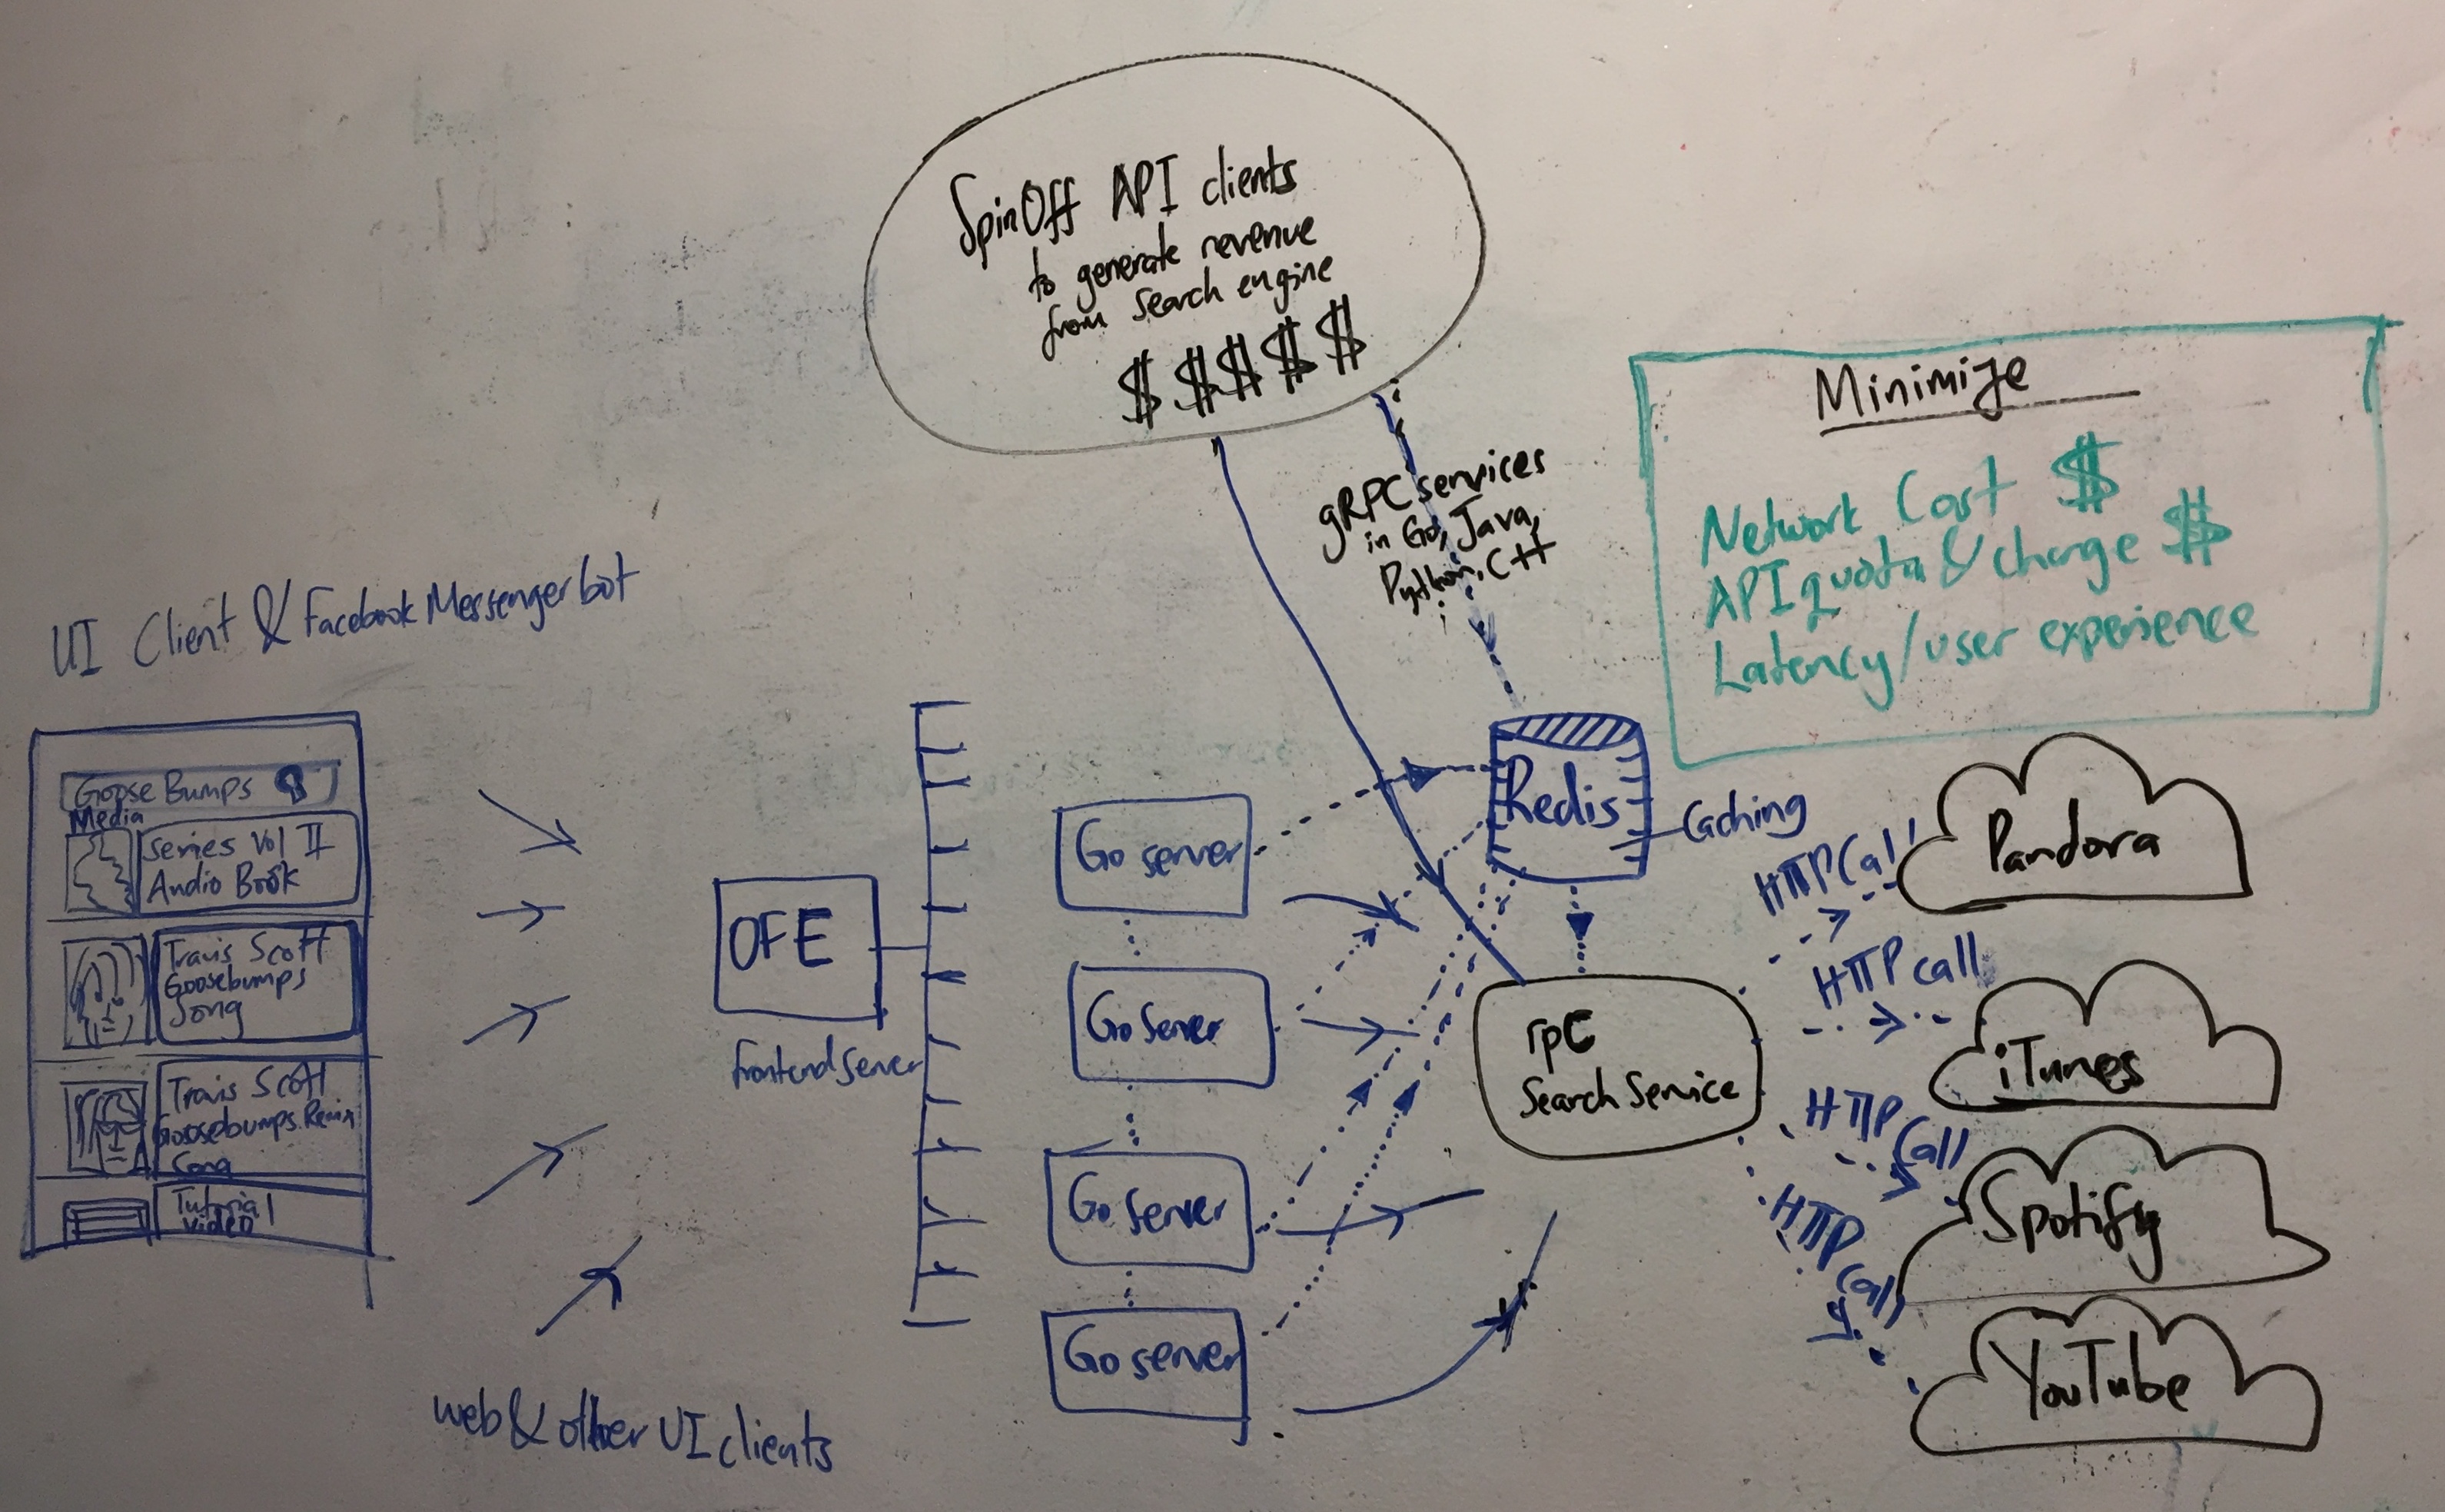 SpinOff API clients
to generate revenue
from search engine
$ $ $ $ $
gRPC services
in Go, Java,
Python, C++
Minimize
Network Cost $
API quota & charge $
Latency/user experience
UI Client & Facebook Messenger bot
Goose Bumps
Media
Series Vol II
Audio Book
Travis Scott
Goosebumps
Song
Travis Scott
Goosebumps Remix
Song
Tutorial
video
web & other UI clients
OFE
frontend server
Go server
Go Server
Go Server
Go server
Redis
Caching
rpc
Search Service
HTTP Call
HTTP call
HTTP Call
HTTP Call
Pandora
iTunes
Spotify
YouTube